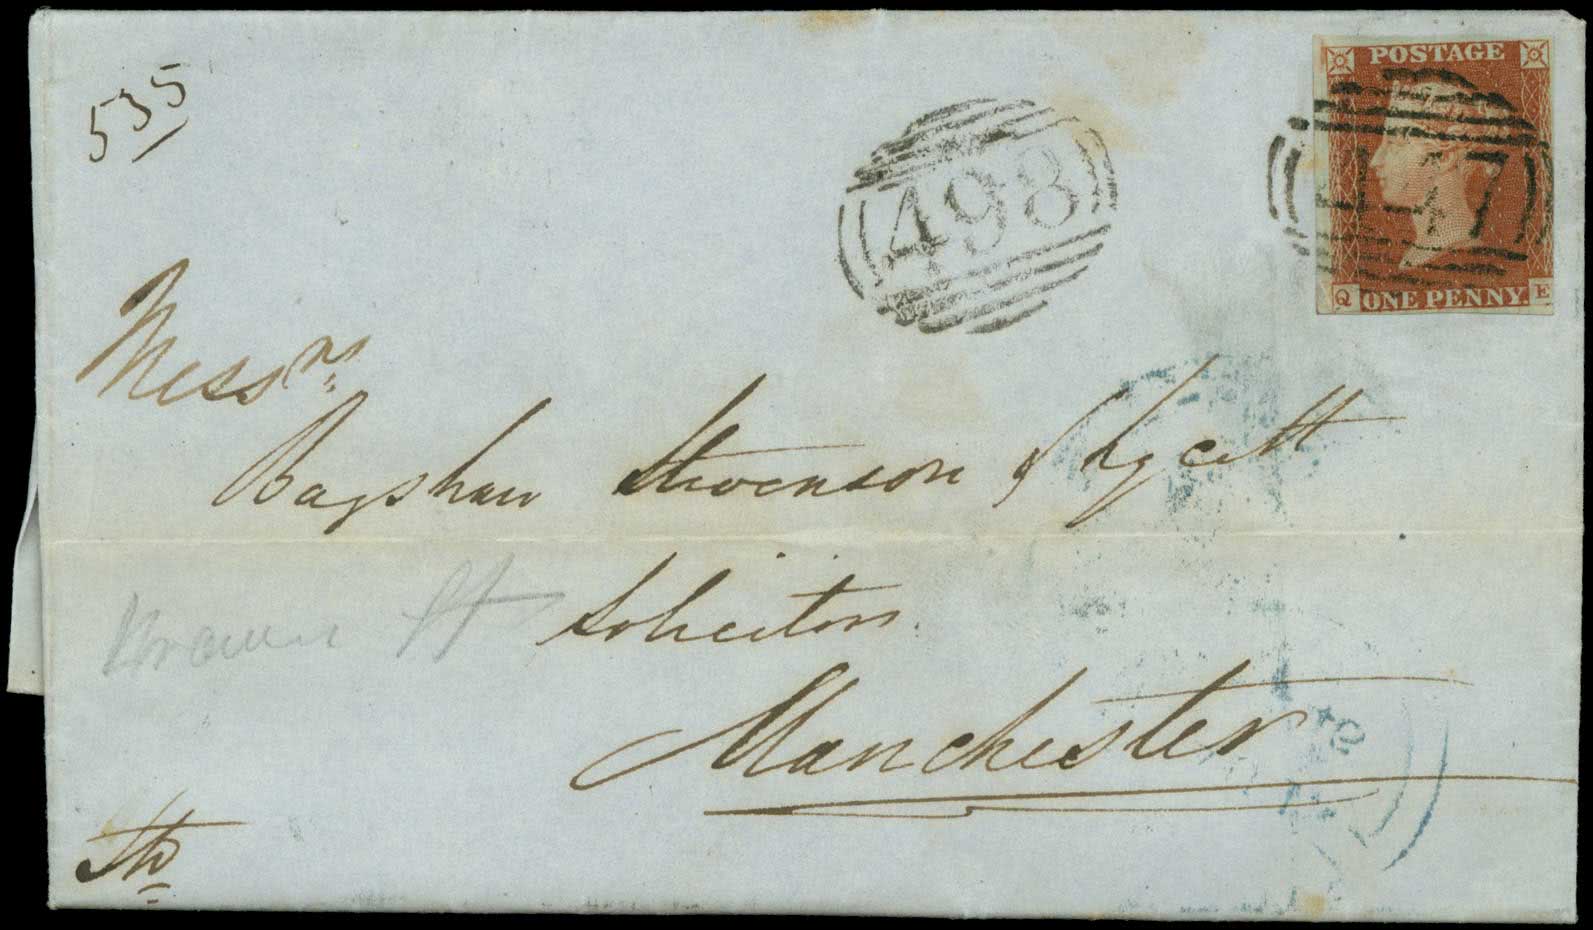 535
POSTAGE
498
47
Q ONE PENNY E
Messrs
Bagshaw Stevenson & Lycett
Solicitors
Manchester